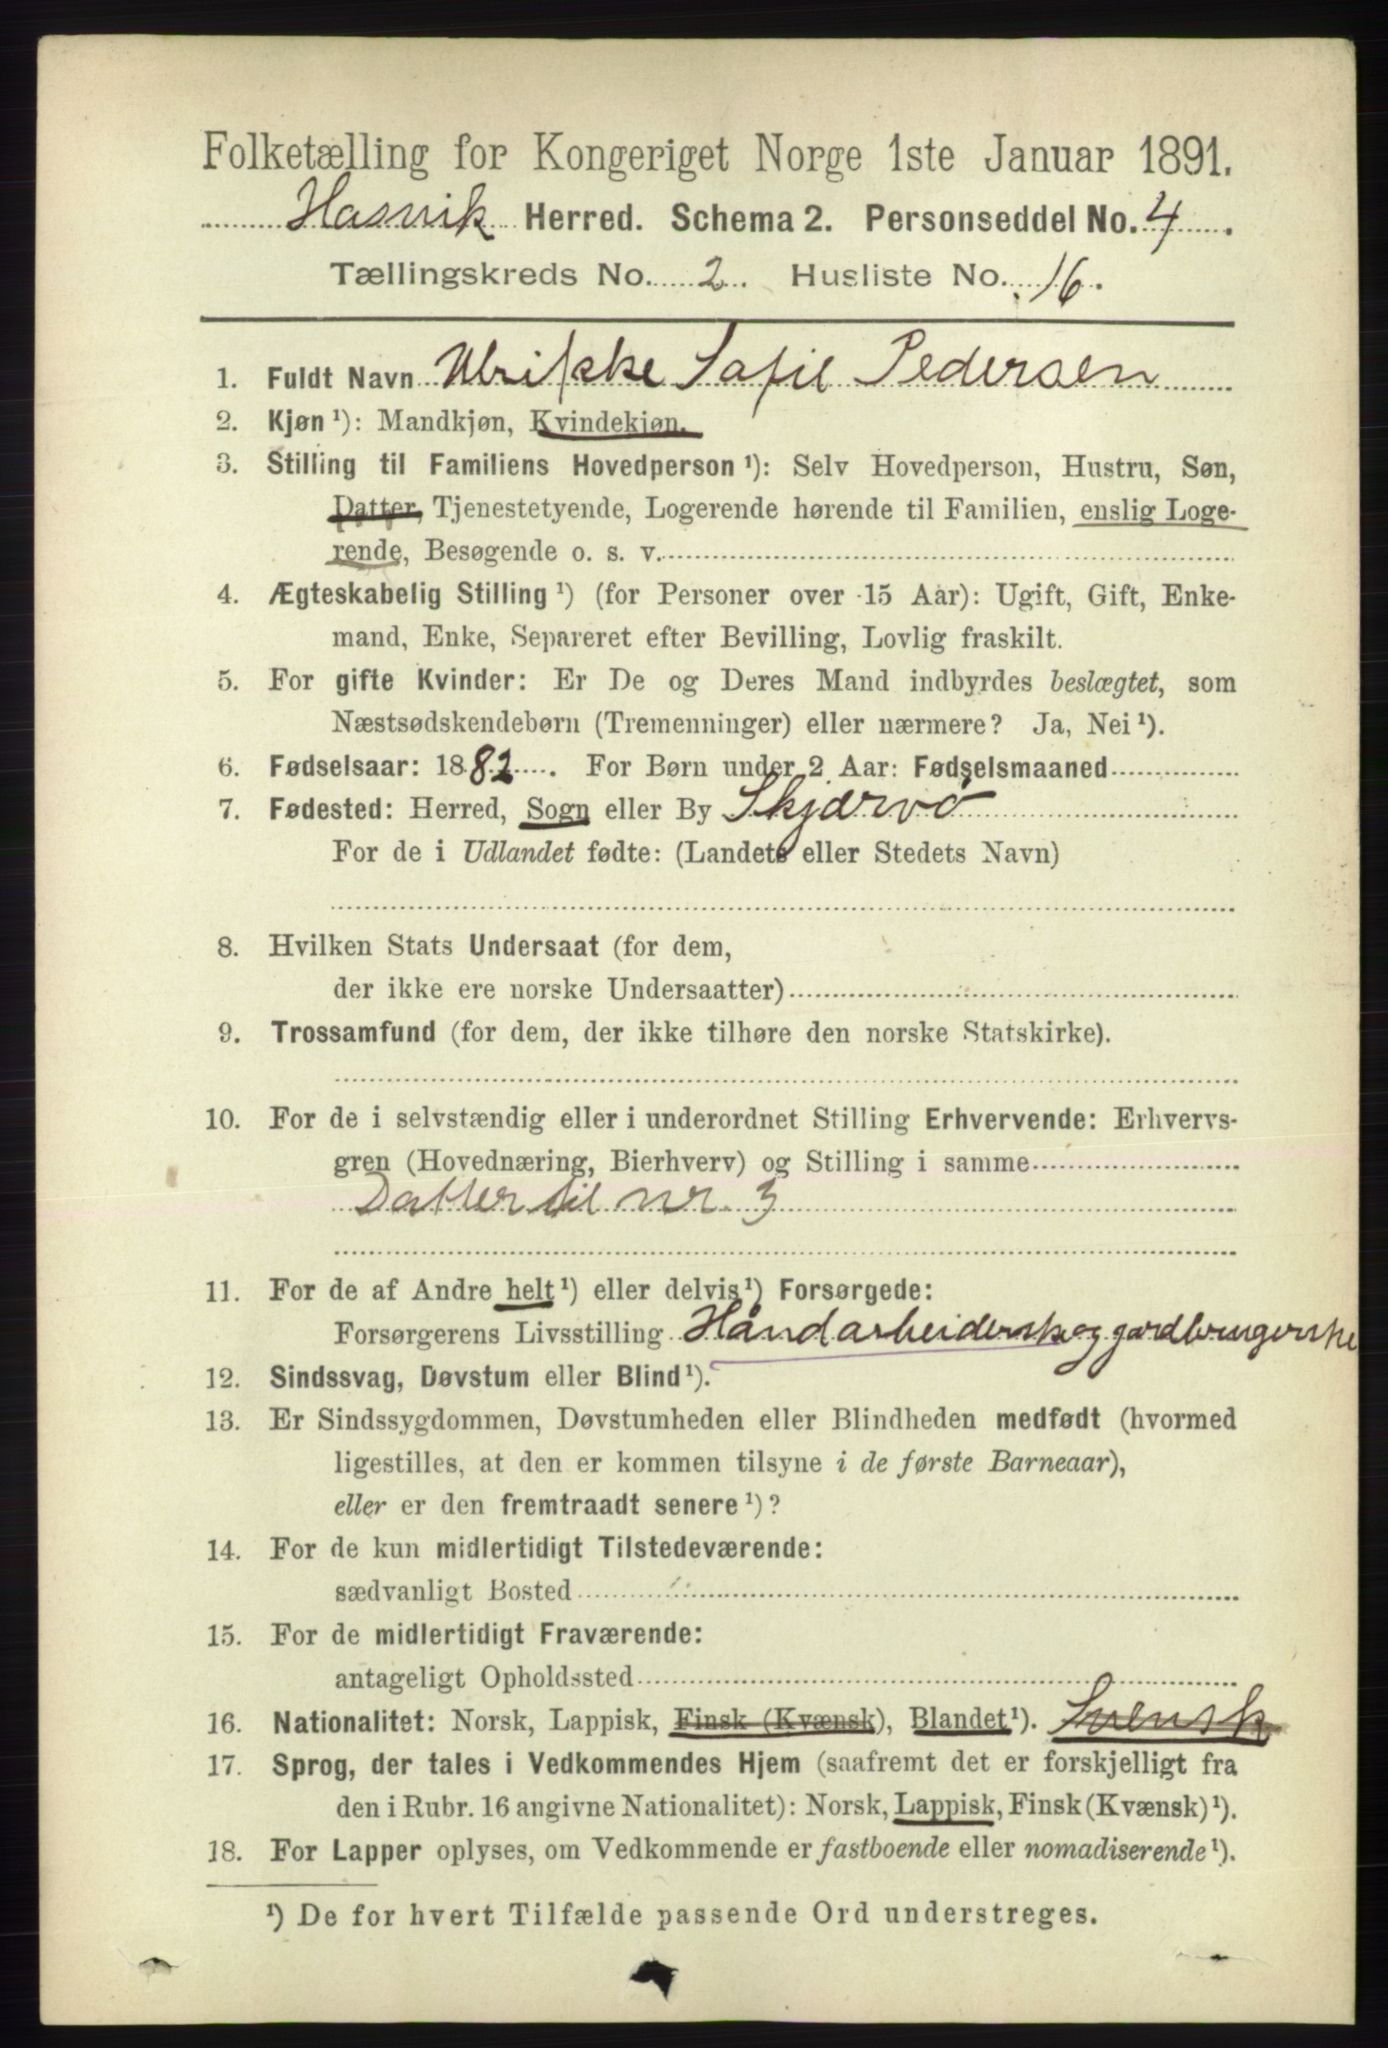 Folketælling for Kongeriget Norge 1ste Januar 1891.
Hasvik Herred. Schema 2. Personseddel No. 4.
Tællingskreds No. 2. Husliste No. 16.
1. Fuldt Navn Ulrikke Safie Pedersen
2. Kjøn ¹): Mandkjøn, Kvindekjøn.
3. Stilling til Familiens Hovedperson ¹): Selv Hovedperson, Hustru, Søn,
Datter, Tjenestetyende, Logerende hørende til Familien, enslig Loge-
rende, Besøgende o. s. v.
4. Ægteskabelig Stilling ¹) (for Personer over 15 Aar): Ugift, Gift, Enke-
mand, Enke, Separeret efter Bevilling, Lovlig fraskilt.
5. For gifte Kvinder: Er De og Deres Mand indbyrdes beslægtet, som
Næstsødskendebørn (Tremenninger) eller nærmere? Ja, Nei ¹).
6. Fødselsaar: 1882. For Børn under 2 Aar: Fødselsmaaned
7. Fødested: Herred, Sogn eller By Skjærvø
For de i Udlandet fødte: (Landets eller Stedets Navn)
8. Hvilken Stats Undersaat (for dem,
der ikke ere norske Undersaatter)
9. Trossamfund (for dem, der ikke tilhøre den norske Statskirke).
10. For de i selvstændig eller i underordnet Stilling Erhvervende: Erhvervs-
gren (Hovednæring, Bierhverv) og Stilling i samme
Datter til nr. 3
11. For de af Andre helt ¹) eller delvis ¹) Forsørgede:
Forsørgerens Livsstilling Håndarbeiderske og gardbrugerske
12. Sindssvag, Døvstum eller Blind ¹).
13. Er Sindssygdommen, Døvstumheden eller Blindheden medfødt (hvormed
ligestilles, at den er kommen tilsyne i de første Barneaar),
eller er den fremtraadt senere ¹)?
14. For de kun midlertidigt Tilstedeværende:
sædvanligt Bosted
15. For de midlertidigt Fraværende:
antageligt Opholdssted
16. Nationalitet: Norsk, Lappisk, Finsk (Kvænsk), Blandet ¹). Svensk
17. Sprog, der tales i Vedkommendes Hjem (saafremt det er forskjelligt fra
den i Rubr. 16 angivne Nationalitet): Norsk, Lappisk, Finsk (Kvænsk) ¹).
18. For Lapper oplyses, om Vedkommende er fastboende eller nomadiserende ¹).
¹) De for hvert Tilfælde passende Ord understreges.